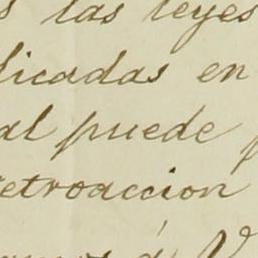 s las leyes
licadas en
al puede p
etroaccion
amos á V